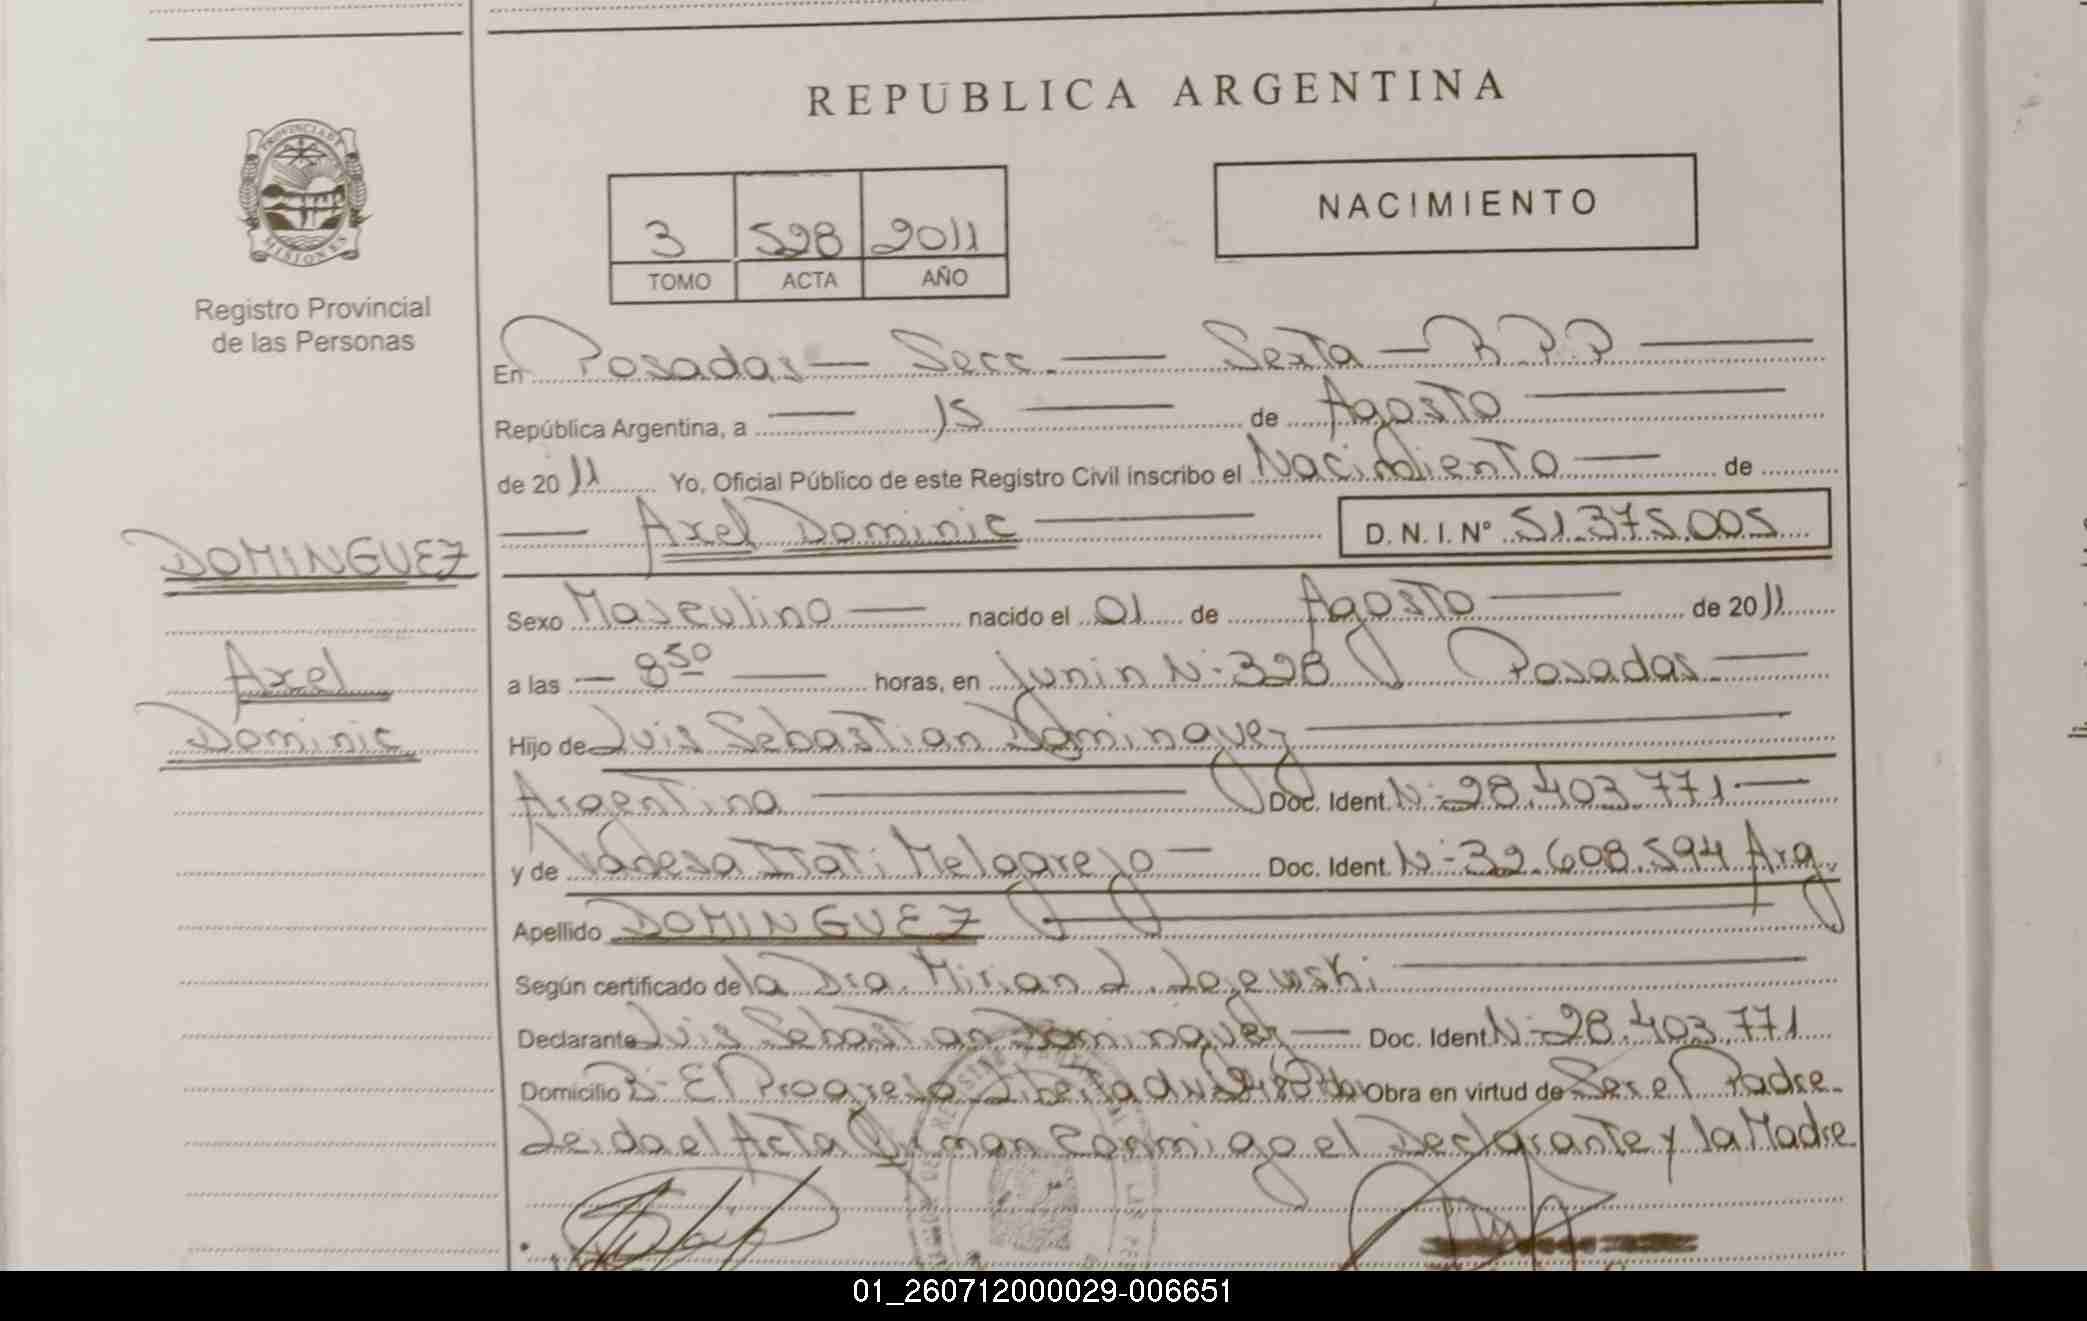 REPUBLICA ARGENTINA
PROVINCIA DE
MISIONES
Registro Provincial
de las Personas
3 528 2011
TOMO ACTA AÑO
NACIMIENTO
En Posadas — Secc. — Sexta — R.P.P —
República Argentina, a — 15 — de Agosto —
de 2011 Yo, Oficial Público de este Registro Civil inscribo el Nacimiento — de
— Axel Dominic — D. N. I. Nº 51.375.005
DOMINGUEZ
Axel
Dominic
Sexo Masculino — nacido el 01 de Agosto — de 2011
a las — 8 50 — horas, en Junin N: 328 Posadas —
Hijo de Luis Sebastian Dominguez —
Argentina — Doc. Ident. N: 28.403.771 —
y de Vanesa Itati Melgarejo — Doc. Ident. N: 32.608.594 Arg.
Apellido DOMINGUEZ —
Según certificado de la Dra. Mirian L. —
Declarante Luis Sebastian Dominguez — Doc. Ident. N: 28.403.771
Domicilio B: El Progreso Obra en virtud de Ser el Padre
Leida el Acta Firman Conmigo el Declarante y la Madre
01_260712000029-006651